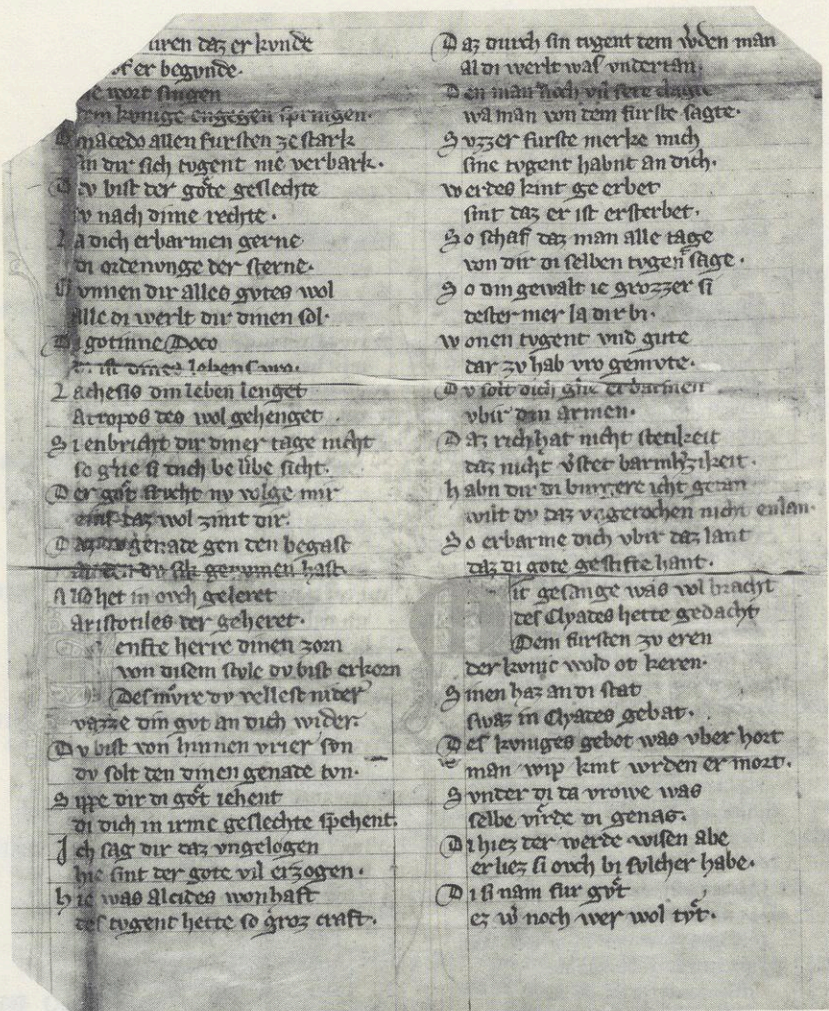 uren daz er kvnde
er begvnde.
wort singen
kvnige engegen springen.
macedo allen fursten ze stark
an dir sich tvgent nie verbark.
ev bist der gote geslechte
nach dime rechte.
La dich erbarmen gerne
di ordenvnge der sterne.
vnnen dir alles gvtes wol
alle di werlt dir dinen sol.
Di gotinne Doco
ist dines lebens vro.
Lachesis din leben lenget
atropos des wol gehenget
Sienbricht dir diner tage nicht
so si dich be libe sicht.
Der got spricht nv volge mir
eins daz wol zimt dir.
genade gen den begast
an den dv sik genvmen hast.
Also het in ovch geleret
aristotiles der geheret.
enfte herre dinen zorn
von disem stvle dv bist erkorn
Des mvre dv vellest nider
vazze din gvt an dich wider.
Dv bist von hinnen vrier svn
dv solt den dinen genade tvn.
Sippe dir di got iehent
di dich in irme geslechte spehent.
Ich sag dir daz vngelogen
hie sint der gote vil erzogen.
hie was alcides wonhaft
des tvgent hette so groz craft.
Daz durch sin tvgent dem wden man
al di werlt was vndertan.
Den man noch vil sere clagte
wa man von dem furste sagte.
Svzzer furste merke mich
sine tvgent habnt an dich.
werdes kint ge erbet
sint daz er ist ersterbet.
So schaf daz man alle tage
von dir di selben tvgen sage.
So din gewalt ie grozzer si
dester mer la dir bi.
wonen tvgent vnd gute
dar zv hab vro gemvte.
Dv solt dich erbarmen
vbir din armen.
Daz rich hat nicht stetikeit
daz nicht vster barmhzikeit.
habn dir di burgere icht getan
wilt dv daz vngerochen nicht enlan.
So erbarme dich vbir daz lant
daz di gote gestifte hant.
Mit gesange was vol bracht
des Clyades hette gedacht
Dem fursten zv eren
der kvnic wold ot keren.
Sinen haz an di stat
swaz in Clyades gebat.
Des kvniges gebot was vber hort
man wip kint wrden er mort.
Svnder di da vrowe was
selbe virde di genas.
Di hiez der werde wisen abe
er liez si ovch bi svlcher habe.
Di si nam fur gvt
ez w noch wer wol tvt.